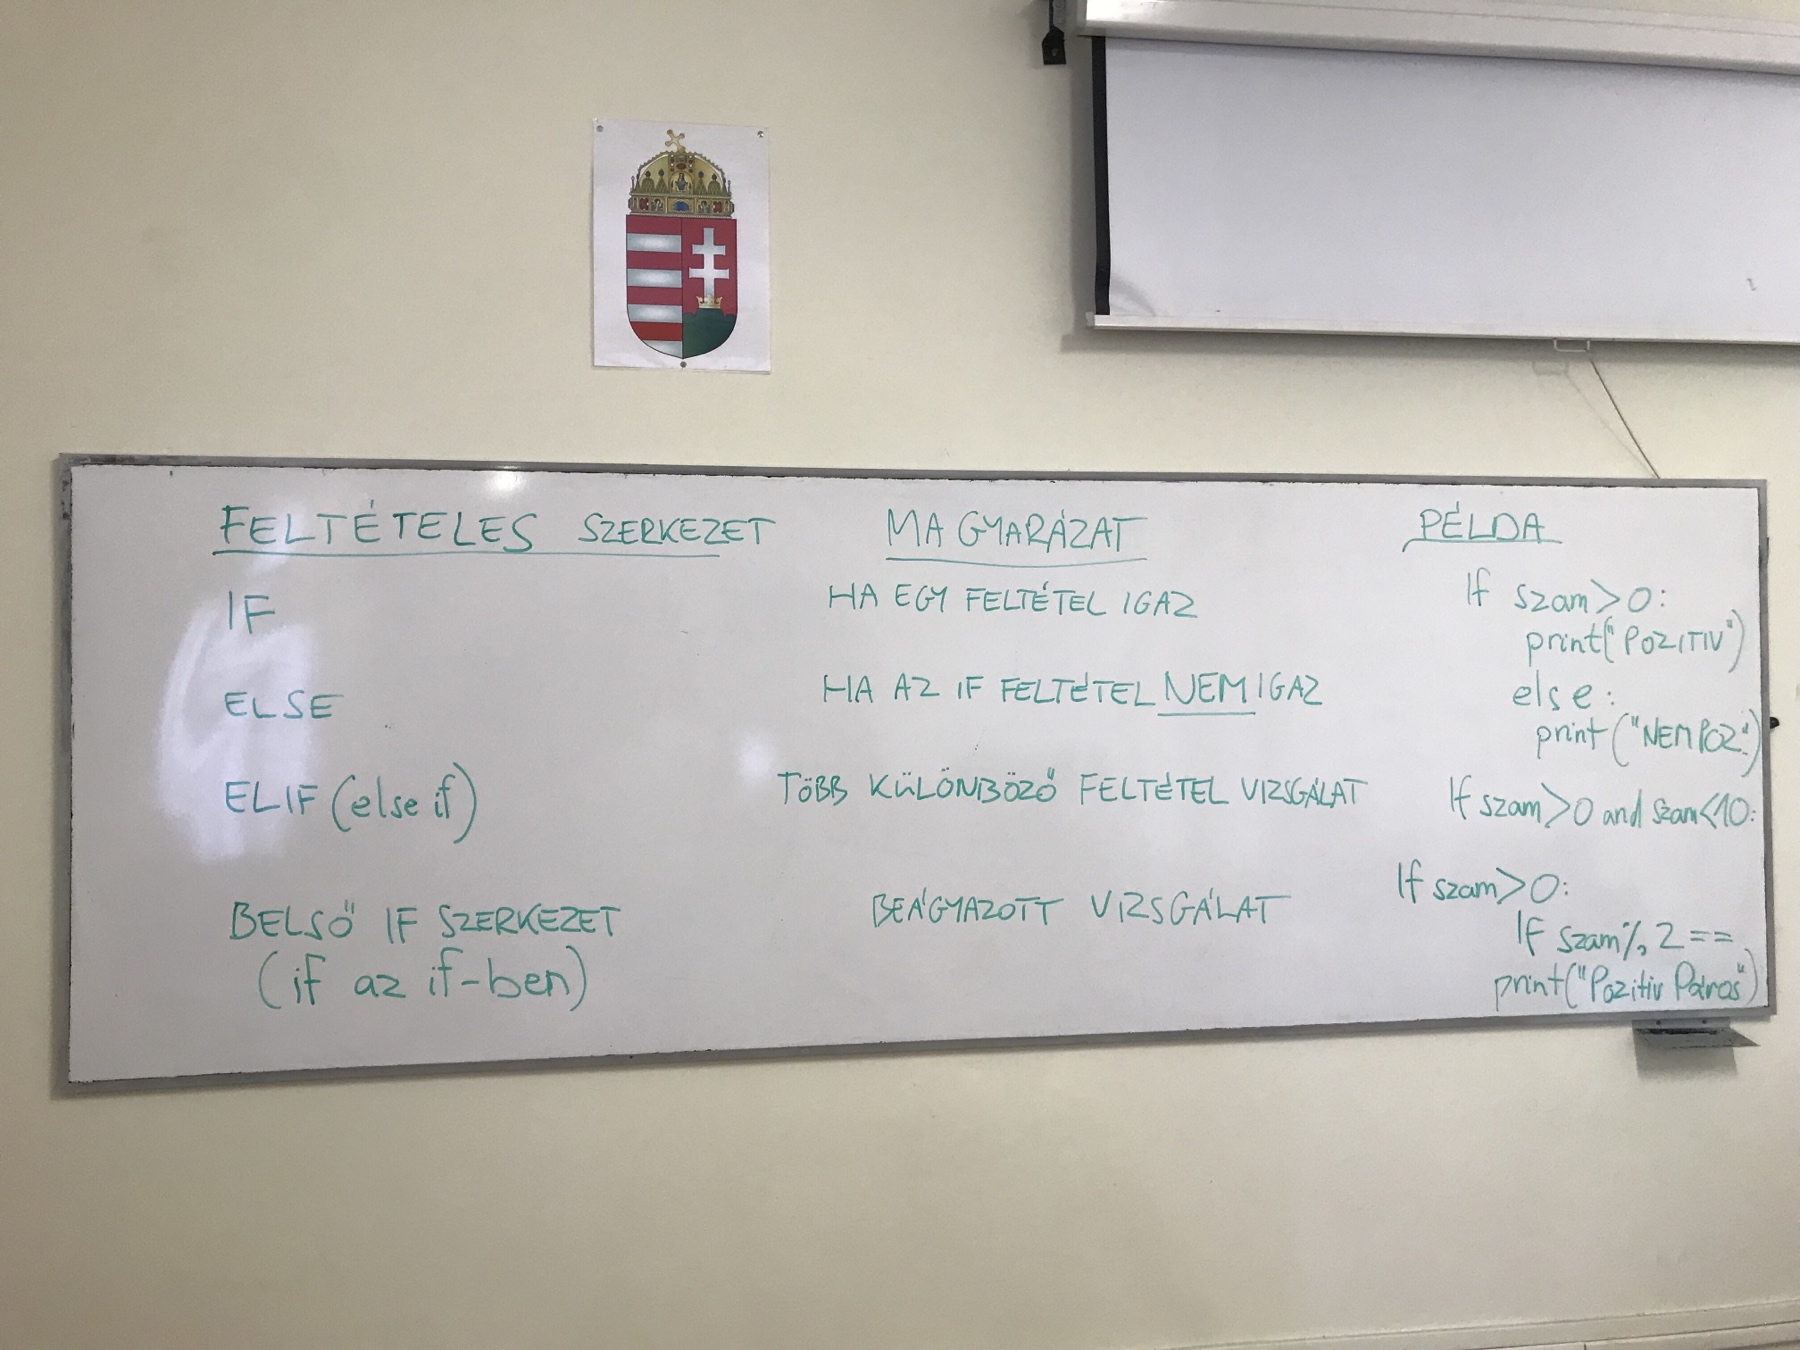 FELTÉTELES SZERKEZET MAGYARÁZAT PÉLDA
IF HA EGY FELTÉTEL IGAZ If szam>0:
print("POZITIV")
ELSE HA AZ IF FELTÉTEL NEM IGAZ else:
print("NEM POZ.")
ELIF (else if) TÖBB KÜLÖNBÖZŐ FELTÉTEL VIZSGÁLAT If szam>0 and szam<10:
BELSŐ IF SZERKEZET BEÁGYAZOTT VIZSGÁLAT If szam>0:
(if az if-ben) If szam%2==
print("Pozitiv Páros")